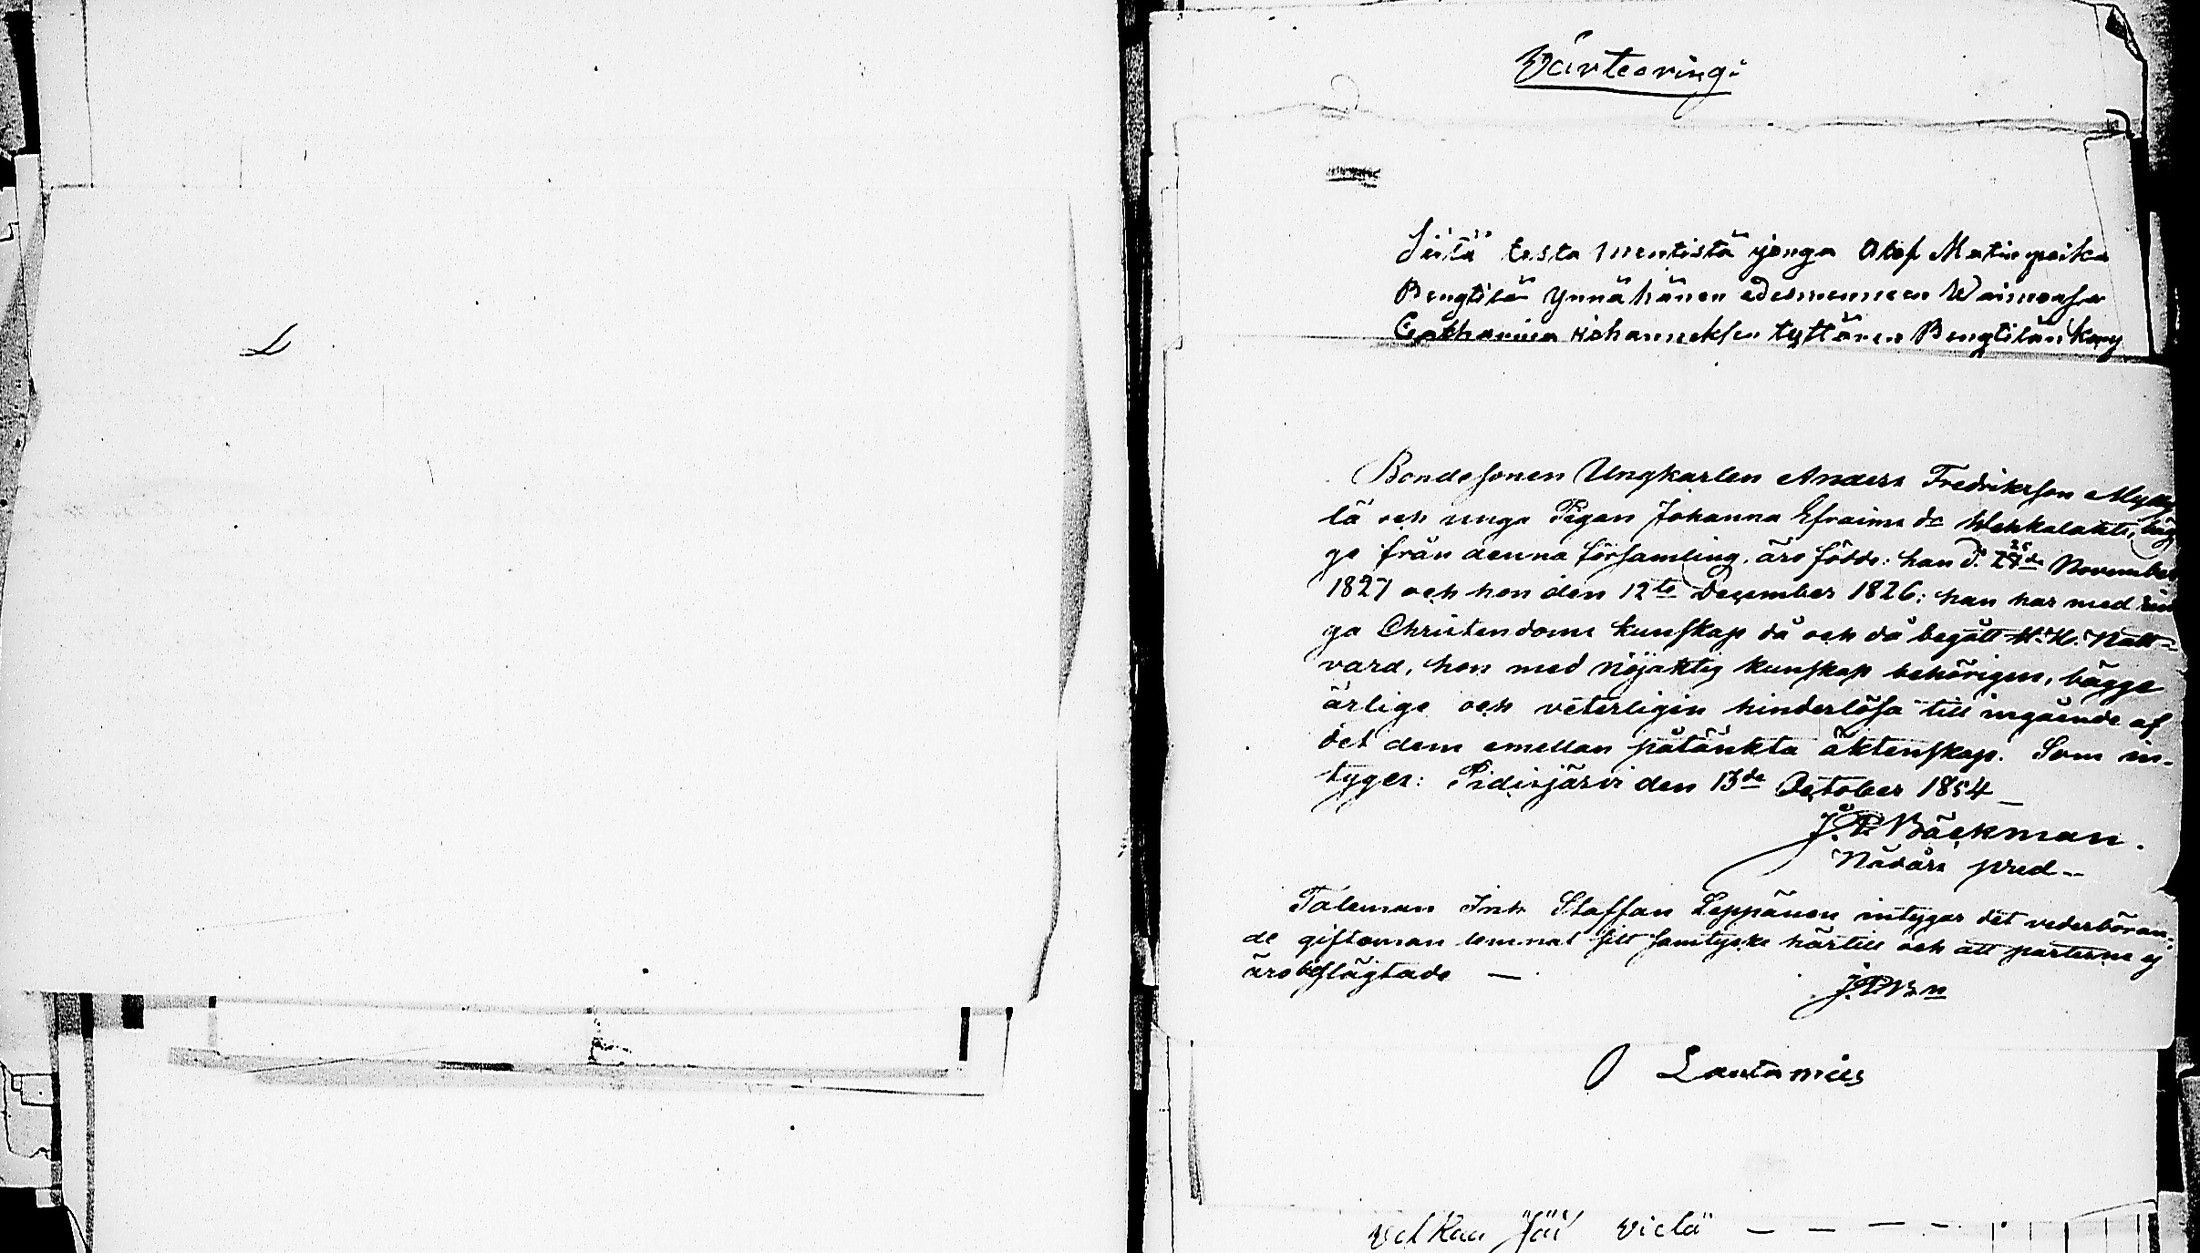 Värteering:
Siitä testa mentistä jonga Olof Matinpoika
Bengtilä ynnä hänen edesmenneen Waimonsa
Catharina Johanneksen tyttären Bengtilän
Bondesonen Ungkarlen Anders Fredriksson
lä och unga Pigan Johanna Efraims dr Wehkalahti, bäg
ge från denna församling, äro födde: han d. 25 November
1827 och hon den 12te December 1826; han har med rin
ga Christendoms kunskap då och då begått H. H. Natt-
vard, hon med nöjaktig kunskap behörigen, bägge
ärlige och veterligen hinderlösa till ingående af
det dem emellan påtänkta äktenskap. Som in-
tyger: Pidisjärvi den 13de October 1854
J. P. Bäckman.
Nådårs pred
Taleman Inh Staffan Leppänen intygar det vederböran-
de giftoman lemnat sitt samtycke härtill och att parterne ej
äro beslägtade —
J. P. Bn
O Lautamies
velkaa jäi vielä — — — —